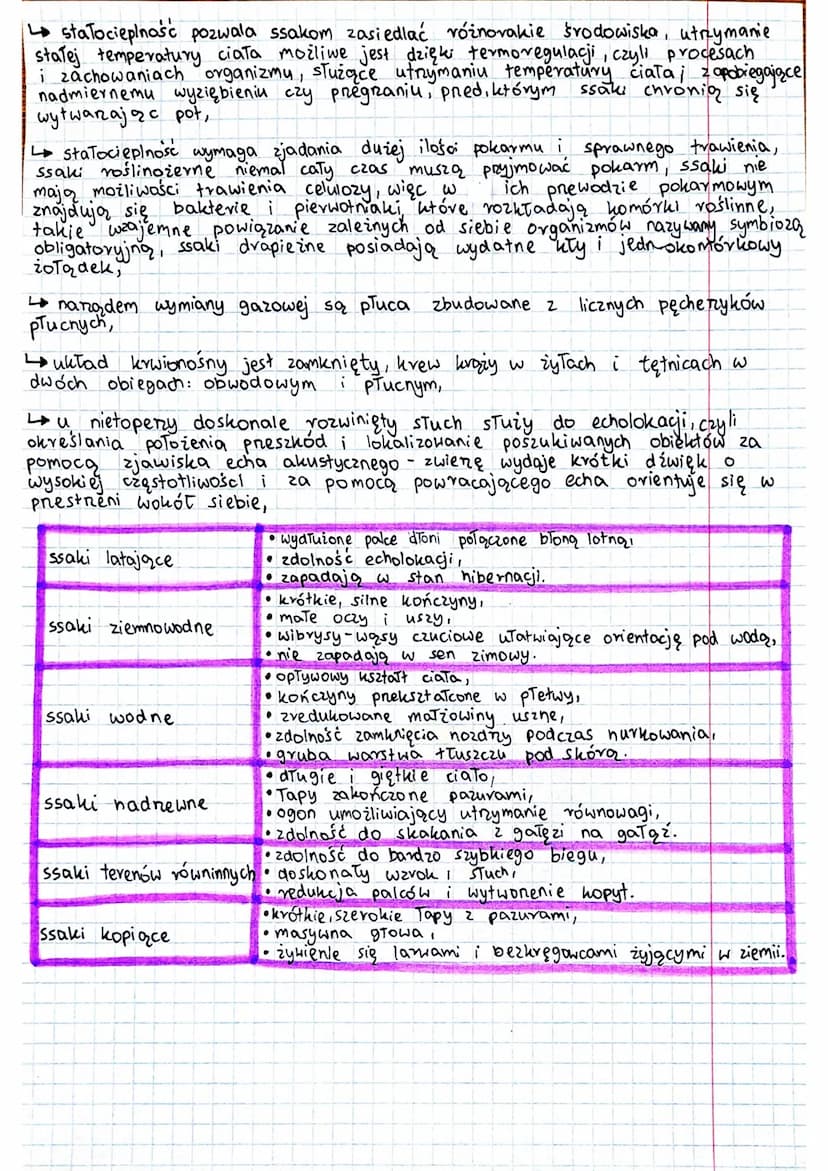 ↳ stałocieplność pozwala ssakom zasiedlać różnorakie środowiska, utrzymanie
stałej temperatury ciała możliwe jest dzięki termoregulacji, czyli procesach
i zachowaniach organizmu, służące utrzymaniu temperatury ciała i zapobiegające
nadmiernemu wyziębieniu czy przegrzaniu, przed, którym ssaki chronią się
wytwarzając pot,
↳ stałocieplność wymaga zjadania dużej ilości pokarmu i sprawnego trawienia,
ssaki roślinożerne niemal cały czas muszą przyjmować pokarm, ssaki nie
mają możliwości trawienia celulozy, więc w ich przewodzie pokarmowym
znajdują się bakterie i pierwotniaki, które rozkładają komórki roślinne,
takie wzajemne powiązanie zależnych od siebie organizmów nazywamy symbiozą
obligatoryjną, ssaki drapieżne posiadają wydatne kły i jednokomórkowy
żołądek,
↳ narządem wymiany gazowej są płuca zbudowane z licznych pęcherzyków
płucnych,
↳ układ krwionośny jest zamknięty, krew krąży w żyłach i tętnicach w
dwóch obiegach: obwodowym i płucnym,
↳ u nietoperzy doskonale rozwinięty słuch służy do echolokacji, czyli
określania położenia przeszkód i lokalizowanie poszukiwanych obiektów za
pomocą zjawiska echa akustycznego - zwierzę wydaje krótki dźwięk o
wysokiej częstotliwości i za pomocą powracającego echa orientuje się w
przestrzeni wokół siebie,
ssaki latające
• wydłużone palce dłoni połączone błoną lotną,
• zdolność echolokacji,
• zapadają w stan hibernacji.
ssaki ziemnowodne
• krótkie, silne kończyny,
• małe oczy i uszy,
• wibrysy-wąsy czuciowe ułatwiające orientację pod wodą,
• nie zapadają w sen zimowy.
ssaki wodne
• opływowy kształt ciała,
• kończyny przekształcone w płetwy,
• zredukowane małżowiny uszne,
• zdolność zamknięcia nozdrzy podczas nurkowania,
• gruba warstwa tłuszczu pod skórą.
ssaki nadrzewne
• długie i giętkie ciało,
• łapy zakończone pazurami,
• ogon umożliwiający utrzymanie równowagi,
• zdolność do skakania z gałęzi na gałąź.
ssaki terenów równinnych
• zdolność do bardzo szybkiego biegu,
• doskonały wzrok i słuch,
• redukcja palców i wytworzenie kopyt.
ssaki kopiące
• krótkie, szerokie łapy z pazurami,
• masywna głowa,
• żywienie się larwami i bezkręgowcami żyjącymi w ziemii.